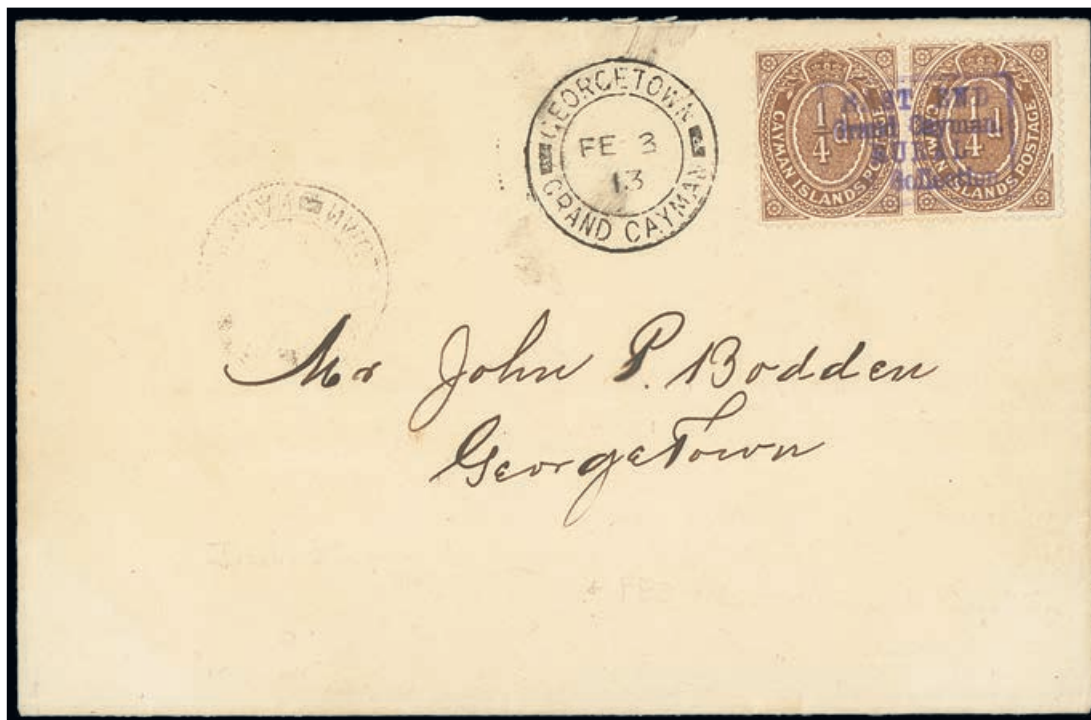 GEORGETOWN
FE 3
13
GRAND CAYMAN
1/4 d
CAYMAN ISLANDS POSTAGE
1/4 d
ISLANDS POSTAGE
EAST END
Grand Cayman,
RURAL
Collection
Mr John P. Bodden
GeorgeTown